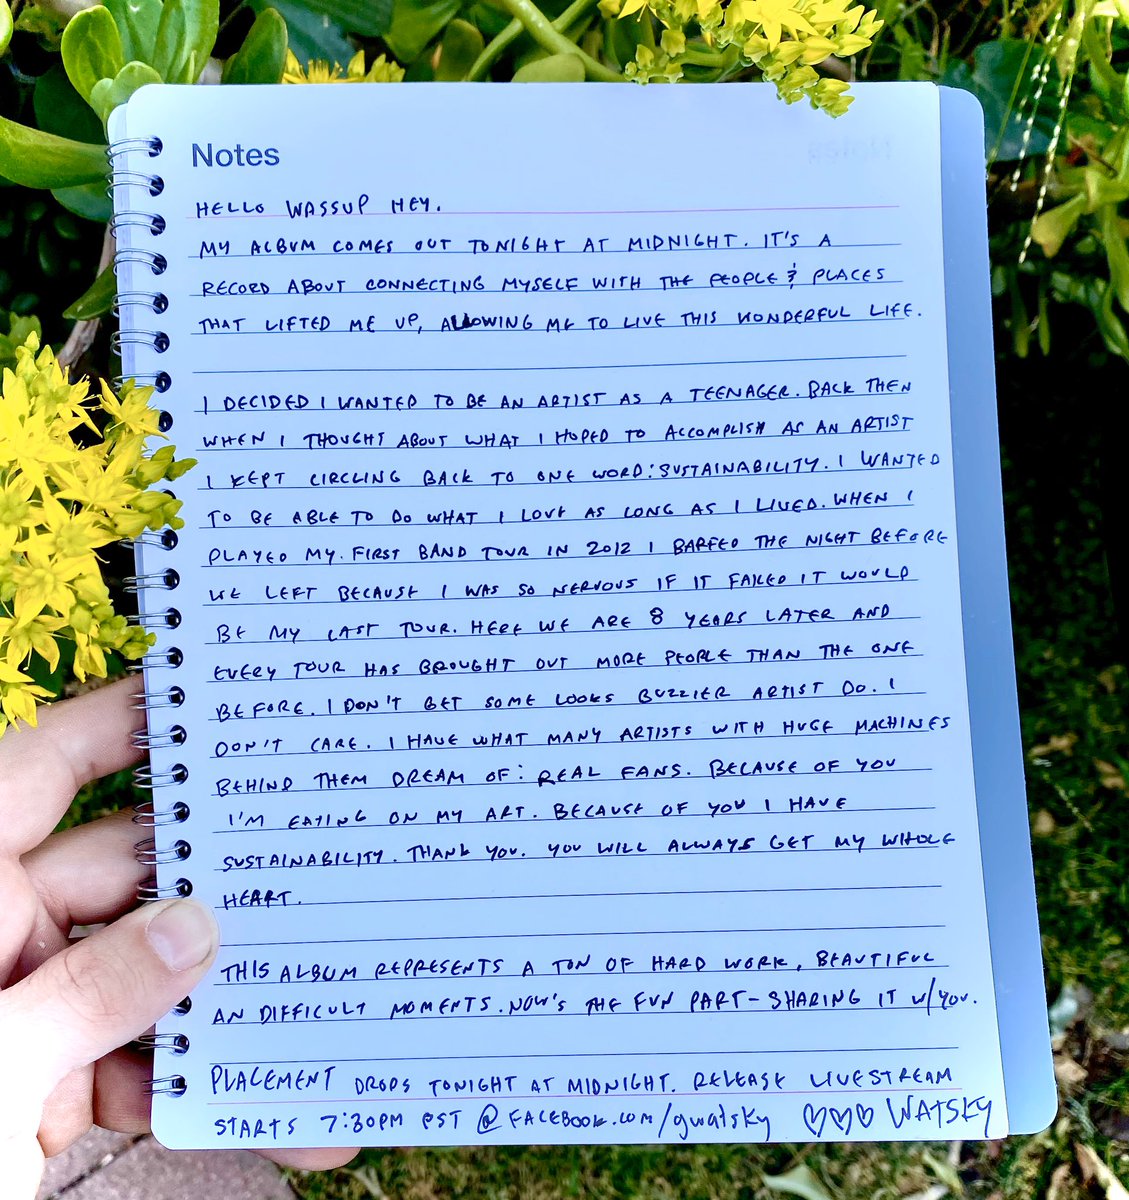 Notes
HELLO WASSUP HEY.
MY ALBUM COMES OUT TONIGHT AT MIDNIGHT. IT'S A
RECORD ABOUT CONNECTING MYSELF WITH THE PEOPLE & PLACES
THAT LIFTED ME UP, ALLOWING ME TO LIVE THIS WONDERFUL LIFE.
I DECIDED I WANTED TO BE AN ARTIST AS A TEENAGER. BACK THEN
WHEN I THOUGHT ABOUT WHAT I HOPED TO ACCOMPLISH AS AN ARTIST
I KEPT CIRCLING BACK TO ONE WORD: SUSTAINABILITY. I WANTED
TO BE ABLE TO DO WHAT I LOVE AS LONG AS I LIVED. WHEN I
PLAYED MY FIRST BAND TOUR IN 2012 I BARFED THE NIGHT BEFORE
WE LEFT BECAUSE I WAS SO NERVOUS IF IT FAILED IT WOULD
BE MY LAST TOUR. HERE WE ARE 8 YEARS LATER AND
EVERY TOUR HAS BROUGHT OUT MORE PEOPLE THAN THE ONE
BEFORE. I DON'T GET SOME LOOKS BUZZIER ARTIST DO. I
DON'T CARE. I HAVE WHAT MANY ARTISTS WITH HUGE MACHINES
BEHIND THEM DREAM OF: REAL FANS. BECAUSE OF YOU
I'M EATING ON MY ART. BECAUSE OF YOU I HAVE
SUSTAINABILITY. THANK YOU. YOU WILL ALWAYS GET MY WHOLE
HEART.
THIS ALBUM REPRESENTS A TON OF HARD WORK, BEAUTIFUL
AN DIFFICULT MOMENTS. NOW'S THE FUN PART - SHARING IT W/YOU.
PLACEMENT DROPS TONIGHT AT MIDNIGHT. RELEASE LIVESTREAM
STARTS 7:30PM PST @ FACEBOOK.COM/gwatsky ♡♡♡ WATSKY